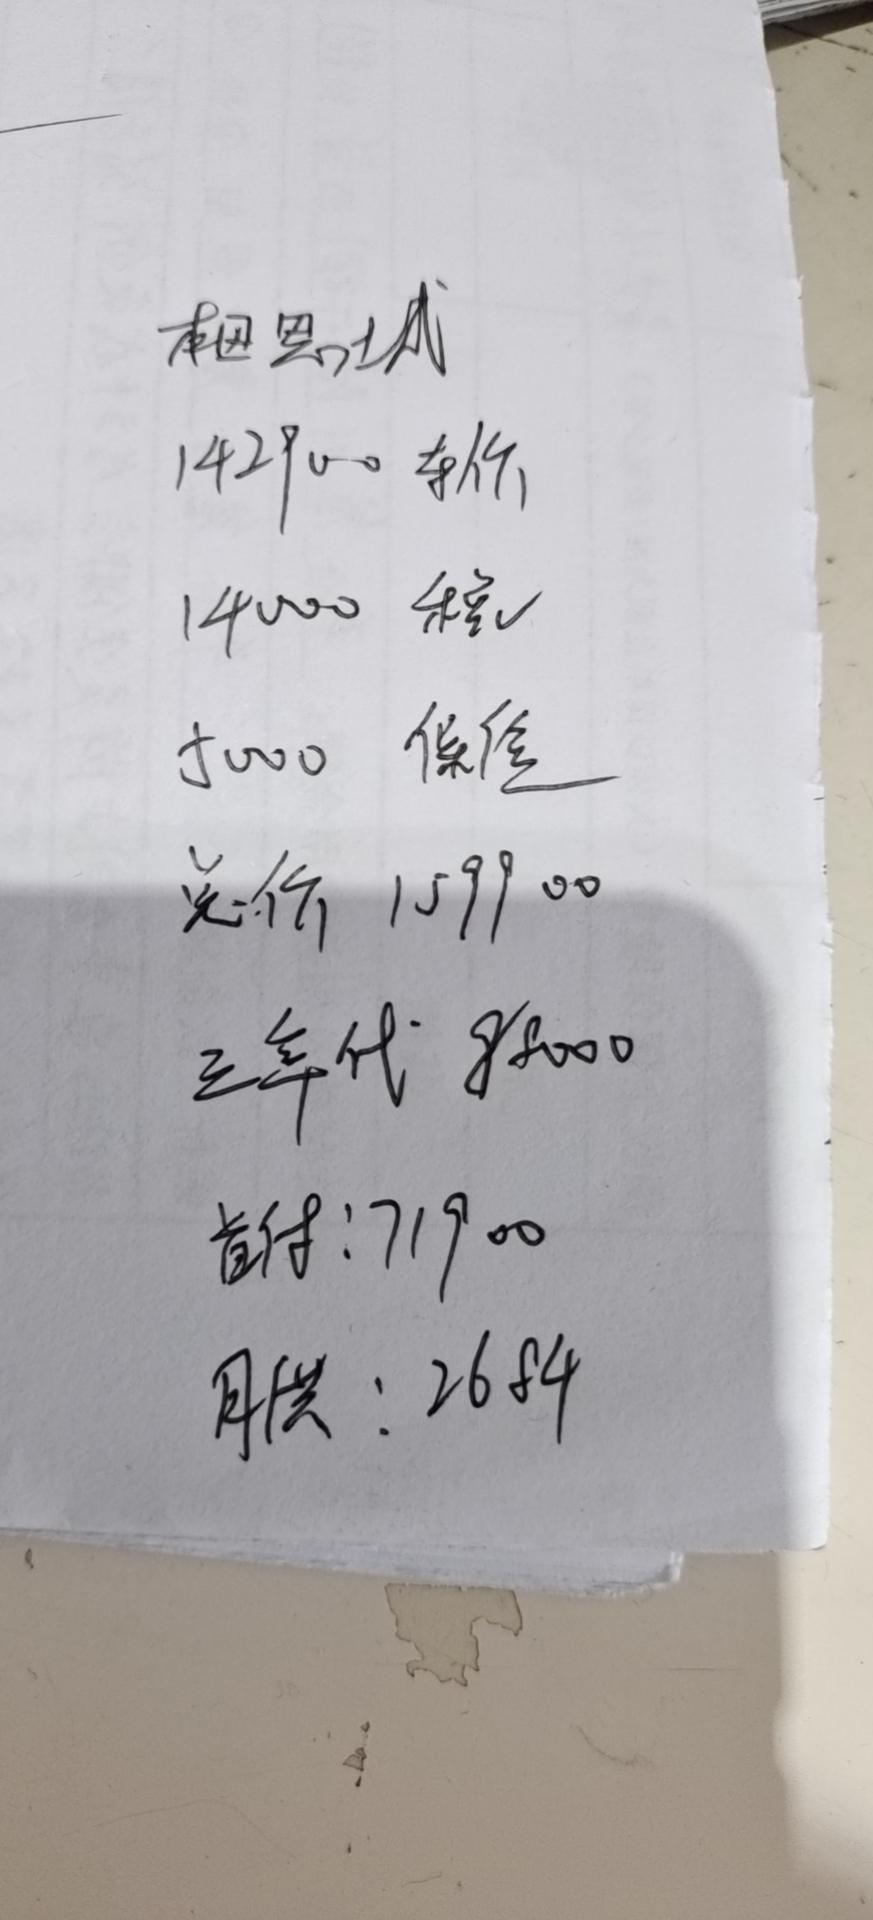 142900 车价
14000 税
5000 保险
总价 159900
三年代 88000
首付:71900
月供:2684